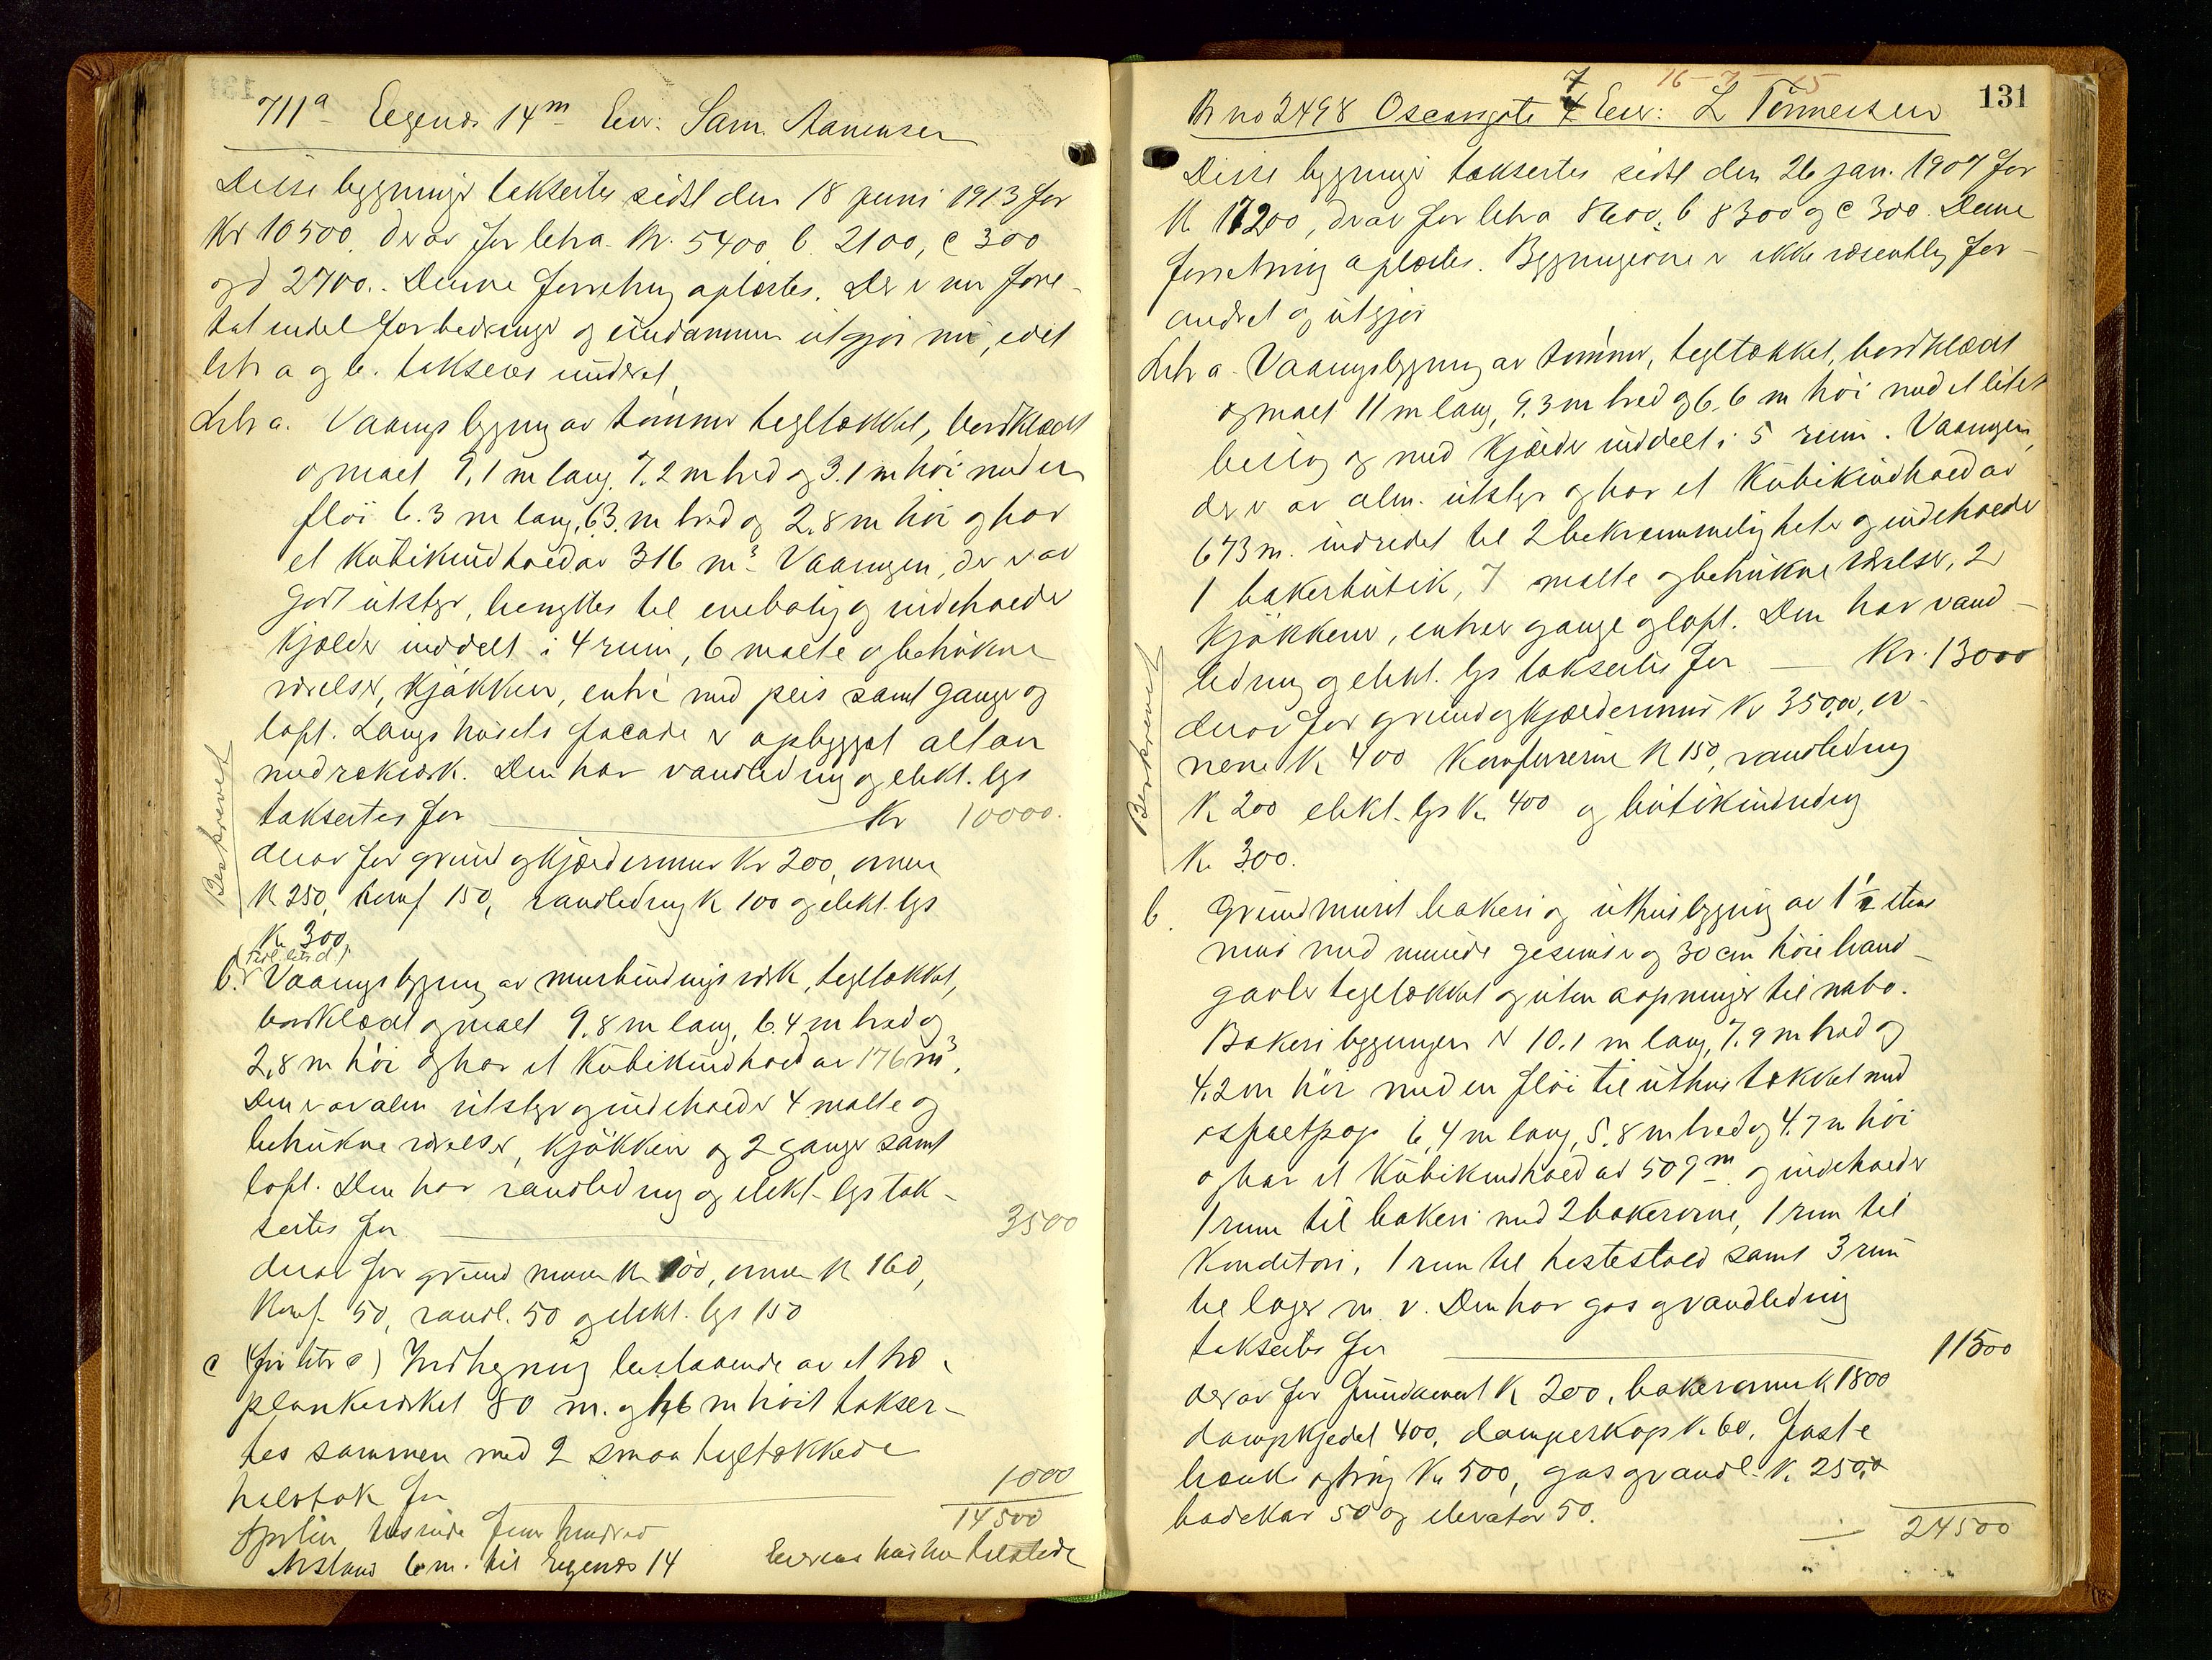 711a Eegenes 14m Eier: Sam. Aanensen
Disse bygninger taksertes sidst den 18 juni 1913 for
Kr 10500, derav for letra. Kr. 5400, b. 2100, c 300
og d 2700.. Denne forretning oplæstes. Der er nu fore-
tat endel forbedringer og eiendommen utgjør nu, idet
litr a og b. takseres under et,
Litr a. Vaaningsbygning av tømmer tegltækket, bordklædt
og malt 9,1 m lang, 7.2 m bred og 3.1 m høi med en
fløi 6.3 m lang, 6,3 m bred og 2,8 m høi og har
et Kubikindhold av 316 m³. Vaaningen, der er av
godt utstyr, benyttes til enebolig og indeholder
kjælder inddelt i 4 rum, 6 malte og betrukne
værelser, kjøkken, entré med peis samt gange og
loft. Langs husets facade er opbygget altan
med rækværk. Den har vandledning og elekt. lys
taksertes for Kr 10000.
derav for grund og kjældermur Kr 200, ovner
K 250, komf 150, vandledning K 100 og elekt. lys
Kr 300,
(tidl. litr d)
b. Vaaningsbygning av murbindingsværk, tegltækket,
bordklædt og malt 9,8 m lang, 6.4 m bred og
2,8 m høi og har et Kubikindhold av 176 m³.
Den er av alm utstyr og indeholder 4 malte og
betrukne værelser, kjøkken og 2 gange samt
loft. Den har vandledning og elekt. lys tak-
sertes for 3500
derav for grundmuren K 100, ovner K 160,
Komf. 50, vandl. 50 og elekt. lys 150
c (før litr c) Indhegning bestaaende av et
plankeværket 80 m. og 1,6 m høit takser-
tes sammen med 2 smaa tegltækkede
halvtak for 1000
14500
fjorten tusinde fem hundred
Avstand 6 m. til Eegenes 14
Eierens hustru tilstede
Beskrevet
16-7-15
131
Br no 2498 Oscarsgate 7 Eier: L Tønnessen
Disse bygninger taksertes sidst den 26 jan. 1907 for
K 17200, derav for letra 8600, b 8300 og c 300. Denne
forretning oplæstes. Bygningerne er ikke væsentlig for-
andret og utgjør
Litr a. Vaaningsbygning av tømmer, tegltækket, bordklædt
og malt 11 m lang, 9.3 m bred og 6.6 m høi med et litet
beslag og med kjælder inddelt i 5 rum. Vaaningen,
der er av alm. utstyr og har et Kubikindhold av
673 m. indredet til 2 bekvemmeligheter og indeholder
1 bakerbutik, 7 malte og betrukne værelser, 2
kjøkkener, entreer gange og loft. Den har vand-
ledning og elekt. lys taksertes for Kr. 13000
derav for grund og kjældermur Kr 350,00, ov-
nene K 400 Komfurerne K 150, vandledning
K 200 elekt. lys K. 400 og butikindredning
K. 300.
Beskrevet
b. Grundmuret bakeri og uthusbygning av 1 1/2 stens
mur med murede gesimser og 30 cm høie brand-
gavler tegltækket og uten aapninger til nabo.
Bakeribygningen er 10.1 m lang, 7.9 m bred og
4.2 m høi med en fløi til uthus tækket med
asfaltpap 6,4 m lang, 5,8 m bred og 4.7 m høi
og har et Kubikindhold av 509 m og indeholder
1 rum til bakeri med 2 bakerovne, 1 rum til
konditori, 1 rum til hestestald samt 3 rum
til lager m. v. Den har gas og vandledning
taksertes for 11500
derav for fundament K 200, bakerovner K 1800
dampkjedel 400, damperkap K. 60, faste
bænke og trug Kr 500, gas og vandl. K. 250,00
badekar 50 og elevator 50.
24500